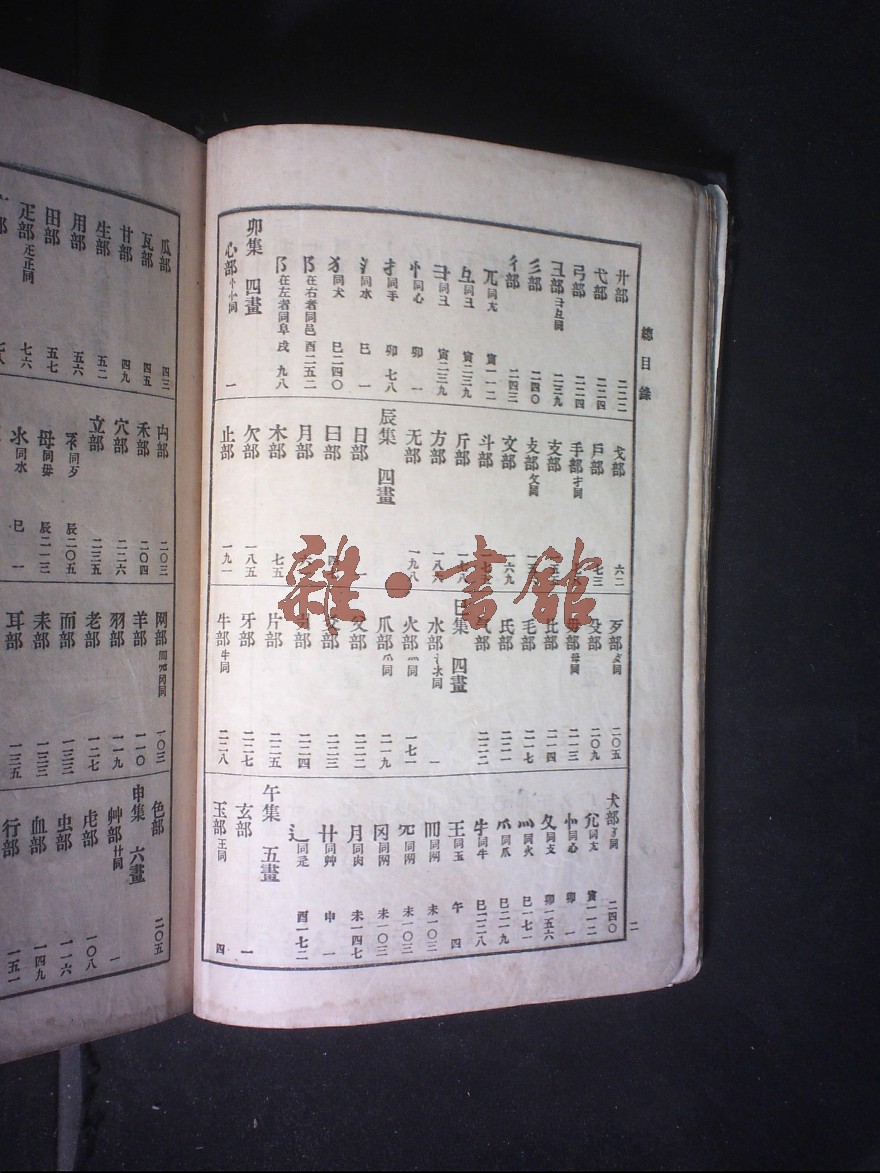 總目錄
廾部 二二二
弋部 二二四
弓部 二二四
彐部 彑彐同 二三九
彡部 二四〇
彳部 二四三
兀同尢 寅一一二
彑同彐 寅二三九
彐同彐 寅二三九
忄同心 卯一
扌同手 卯七八
氵同水 巳一
犭同犬 巳二四〇
阝在右者同邑 酉二五二
阝在左者同阜 戌九八
卯集 四畫
心部 忄㣺同 一
戈部 六二
戶部 七三
手部 扌同
支部
攴部 攵同
文部 一六九
斗部
斤部
方部 一八六
无部 一九八
辰集 四畫
日部 一
曰部
月部
木部 七五
欠部 一八五
止部 一九一
歹部 歺同 二〇五
殳部 二〇九
毋部 母同 二一三
比部 二一四
毛部 二一七
氏部 二二一
气部 二二二
巳集 四畫
水部 氵氺同 一
火部 灬同 一七一
爪部 爫同 二一九
父部 二二二
爻部 二二三
爿部 二二四
片部 二二五
牙部 二二七
牛部 牜同 二二八
犬部 犭同 二四〇
尣同尢 寅一一二
忄同心 卯一
攵同攴 卯一五六
灬同火 巳一七一
爫同爪 巳二一九
牜同牛 巳二二八
王同玉 午四
罒同网 未一〇三
㓁同网 未一〇三
冈同网 未一〇三
月同肉 未一四七
艹同艸 申一
辶同辵 酉一七二
午集 五畫
玄部 一
玉部 王同 四
二
瓜部 四三
瓦部 四五
甘部 四九
生部 五二
用部 五六
田部 五七
疋部 𤴔正同 七六
禸部 二〇三
禾部 二〇四
穴部 二二六
立部 二三五
歺同歹 辰二〇五
母同毋 辰二一三
氺同水 巳一
网部 罒㓁冈同 一〇三
羊部 一一〇
羽部 一一九
老部 一二七
而部 一三三
耒部 一三三
耳部 一三五
色部 二〇五
申集 六畫
艸部 艹同 一
虍部 一〇八
虫部 一一六
血部 一四九
行部 一五一
雜·書館